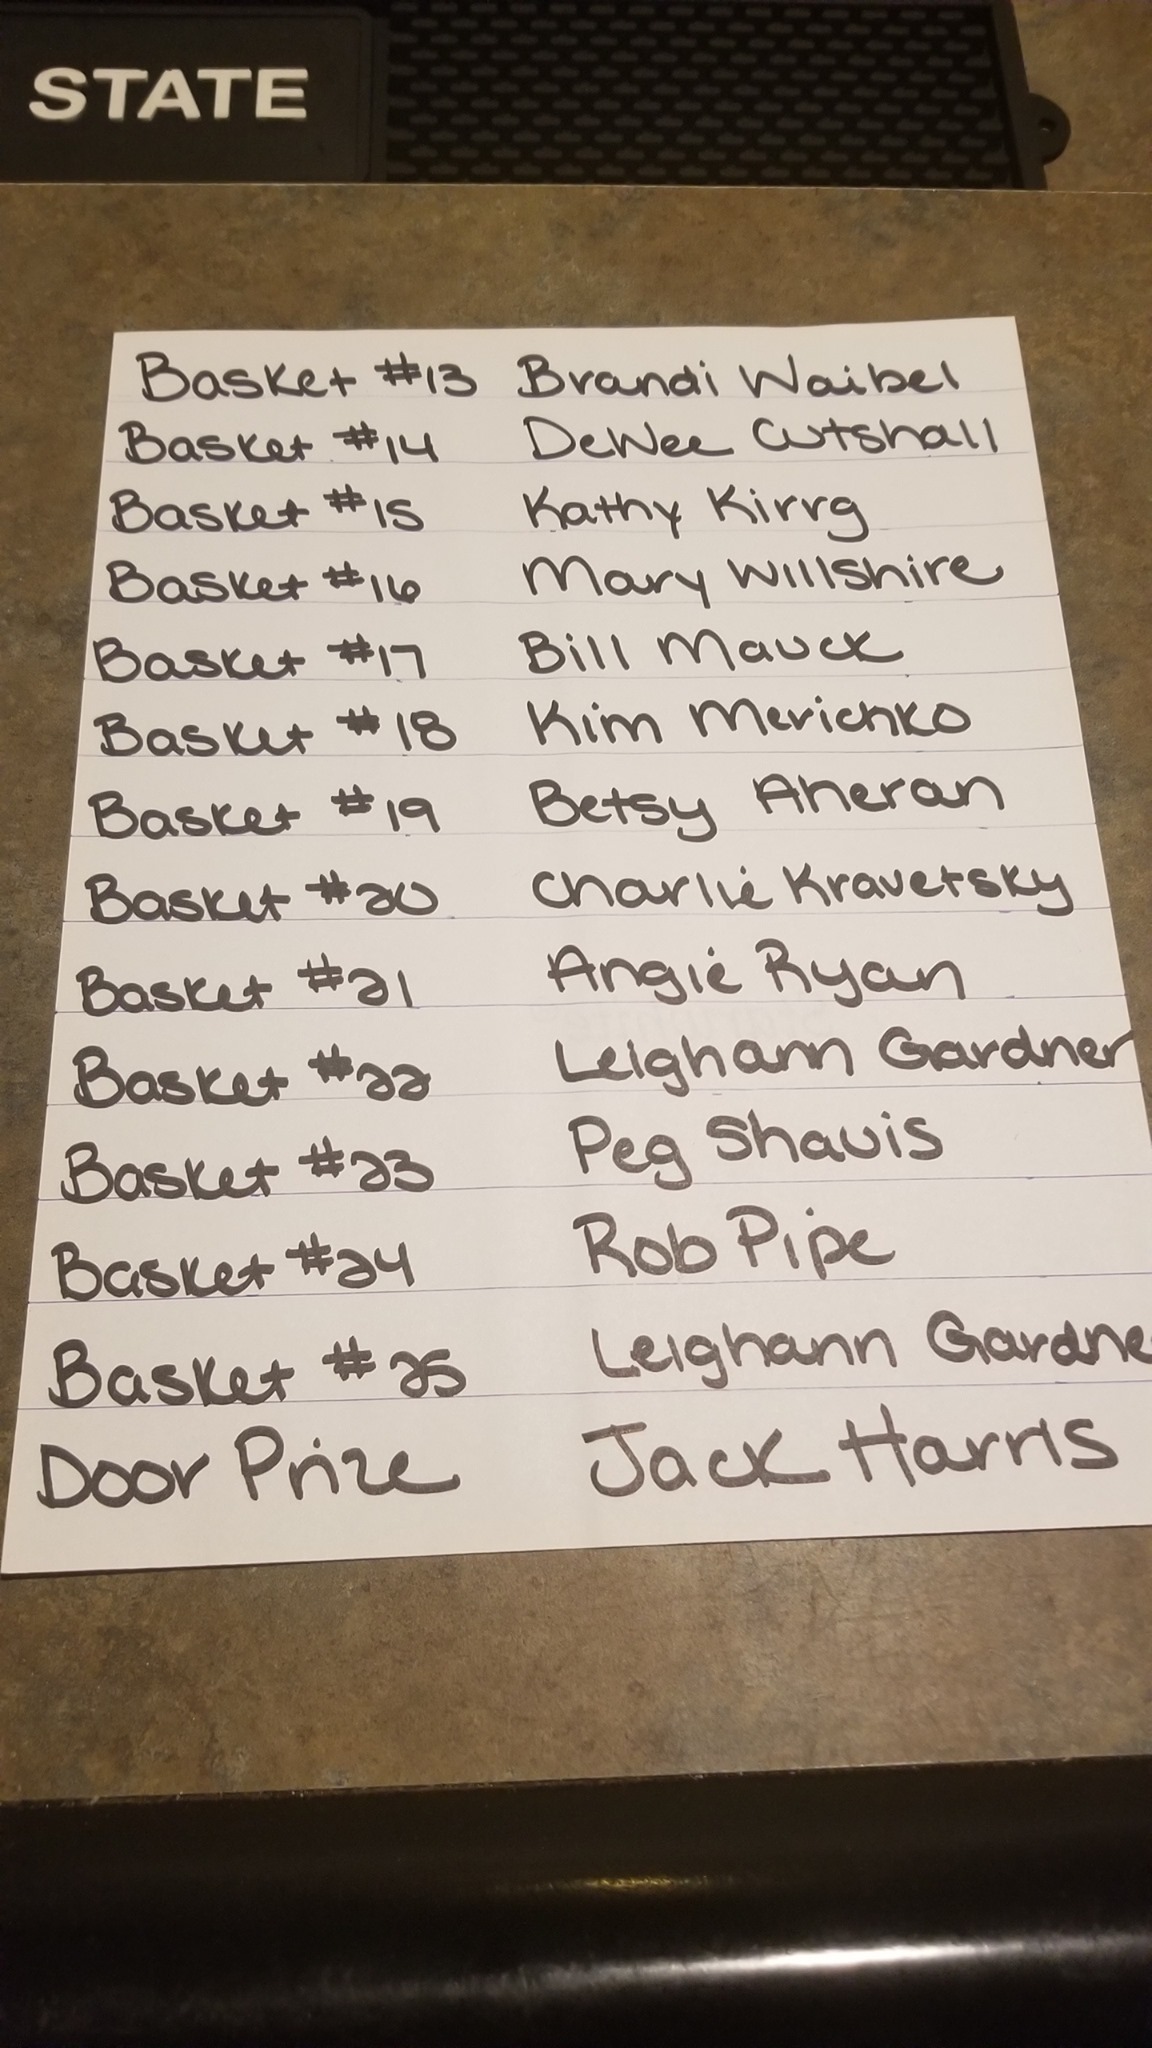 STATE
Basket #13 Brandi Waibel
Basket #14 DeWee Cutshall
Basket #15 Kathy Kirrg
Basket #16 Mary Willshire
Basket #17 Bill Mauck
Basket #18 Kim Merichko
Basket #19 Betsy Aheran
Basket #20 Charlie Kravetsky
Basket #21 Angie Ryan
Basket #22 Leighann Gardner
Basket #23 Peg Shavis
Basket #24 Rob Pipe
Basket #25 Leighann Gardne
Door Prize Jack Harris